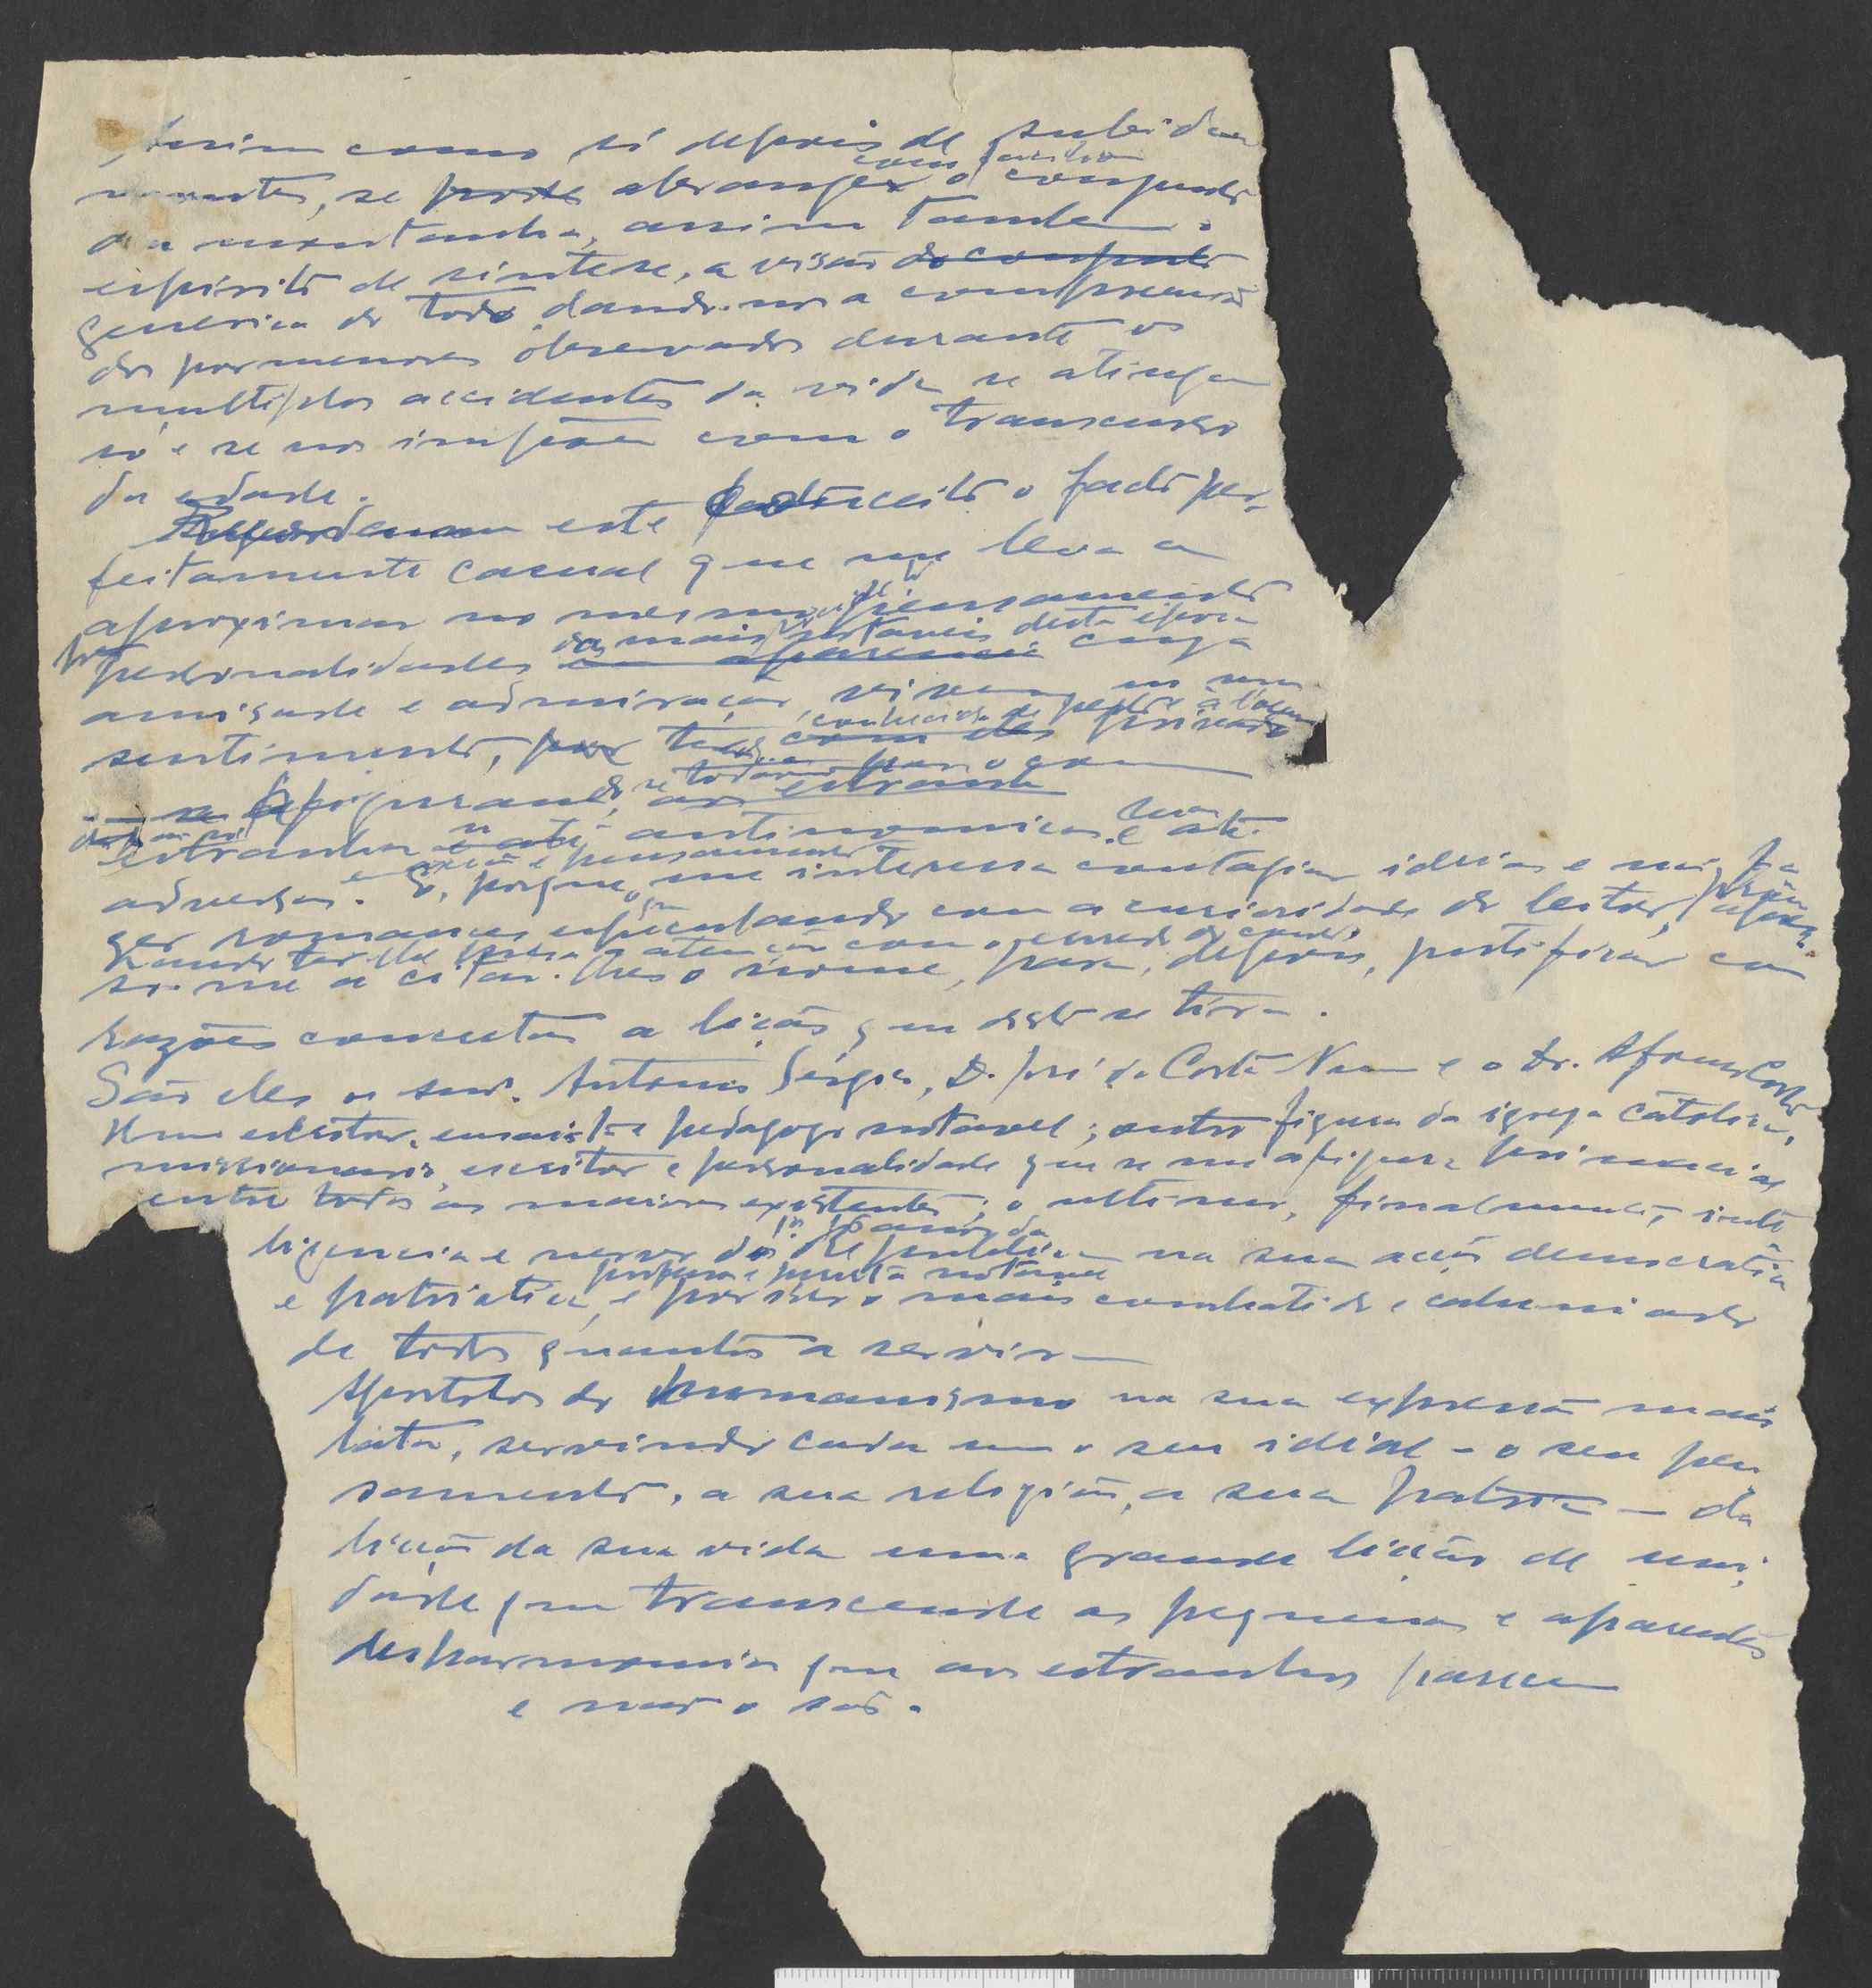 Assim como só depois de subida a
montes, se pode abranger com justeza o conjunto
da montanha, assim tambem o
espirito de sintese, a visão do conjunto
generica do todo, dando-nos a compreensão
dos pormenores observados durante os
multiplos accidentes da vida se atinge
só e se nos impõem com o transcurso
da edade.
este conceito o facto per-
feitamente casual que me leva a
aproximar no mesmo pensamento
personalidades das mais notaveis desta época cuja
amisade e admiração, vivem no meu
sentimento, por ter conhecido de perto
se afigurando, aos estranhos
estranha e até antinomica e até
adversa. E, porque me interessa contagiar ideias e não fa
zer romances especulando com a curiosidade do leitor,
so-me a citar-lhes o nome, para, depois, justificar com
razões concretas a lição que deste se tira.
São eles os snrs. Antonio Sérgio, D. José da Costa Nunes e o Dr. Afonso Costa
Um escritor, ensaista e pedagogo notavel; outro figura da igreja catolica,
missionario, escritor e personalidade que se me afigura primacial
entre todos as maiores existentes; o ultimo, finalmente, inte
ligencia e nervo dos 1os 16 anos da Republica na sua acção democratica
e patriotica, professor e jurista notavel e por isso o mais combatido e caluniado
de todos quantos a serviram
Apostolos do humanismo na sua expressão mais
lata, servindo cada um o seu ideial - o seu pen
samento, a sua religião, a sua patria - da
lição da sua vida uma grande lição de uni-
dade que transcende as pequenas e aparentes
desharmonias que aos estranhos parecem
e não o são.